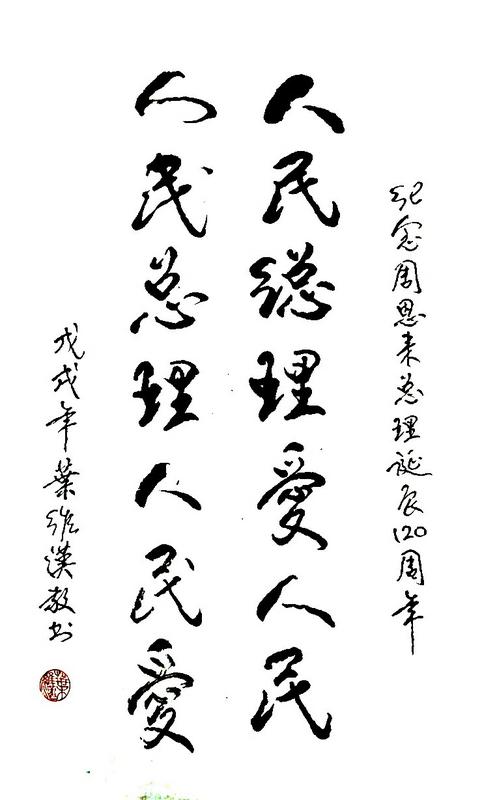 纪念周恩来总理诞辰120周年
人民總理愛人民
人民总理人民愛
戊戌年葉維漢敬书